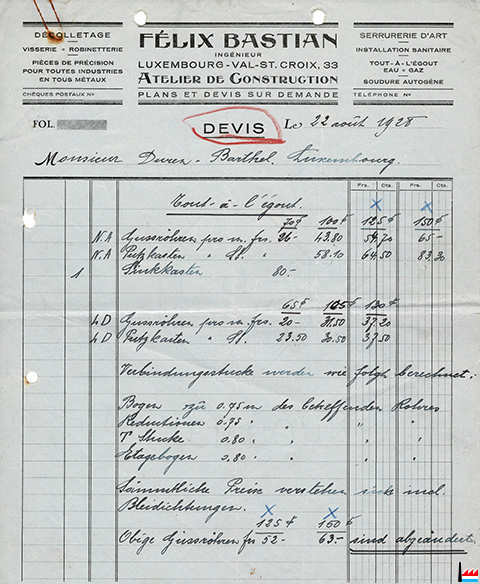 DÉCOLLETAGE
VISSERIE - ROBINETTERIE
PIÈCES DE PRÉCISION
POUR TOUTES INDUSTRIES
EN TOUS MÉTAUX
CHÈQUES POSTAUX No
FÉLIX BASTIAN
INGÉNIEUR
LUXEMBOURG-VAL-ST. CROIX, 33
ATELIER DE CONSTRUCTION
PLANS ET DEVIS SUR DEMANDE
SERRURERIE D'ART
INSTALLATION SANITAIRE
TOUT-À-L'ÉGOUT
EAU - GAZ
SOUDURE AUTOGÈNE
TÉLÉPHONE No
FOL.
DEVIS
Le 22 août 1928
Monsieur Duren-Barthel, Luxembourg.
Frs. Cts. Frs. Cts.
Tout-à-l'égout.
70 100 125 150
N.A Gussröhren pro m. frs. 26- 43.80 54.70 65-
N.A Putzkasten " St. " 58.10 64.50 83.20
1 Sinkkasten 80.-
65 105 130
LD Gussröhren pro m. frs. 20- 31.50 37.20
LD Putzkasten " St. 23.50 30.50 37.50
Verbindungsstücke werden wie folgt berechnet:
Bogen zu 0.75 m des betreffenden Rohres
Reductionen 0.75 " " " "
T Stücke 0.80 " " " "
Etagebogen 0.80 " " " "
Sämmtliche Preise verstehen sich incl.
Bleidichtungen.
125 150
Obige Gussröhren frs 52- 63- sind abgeändert.